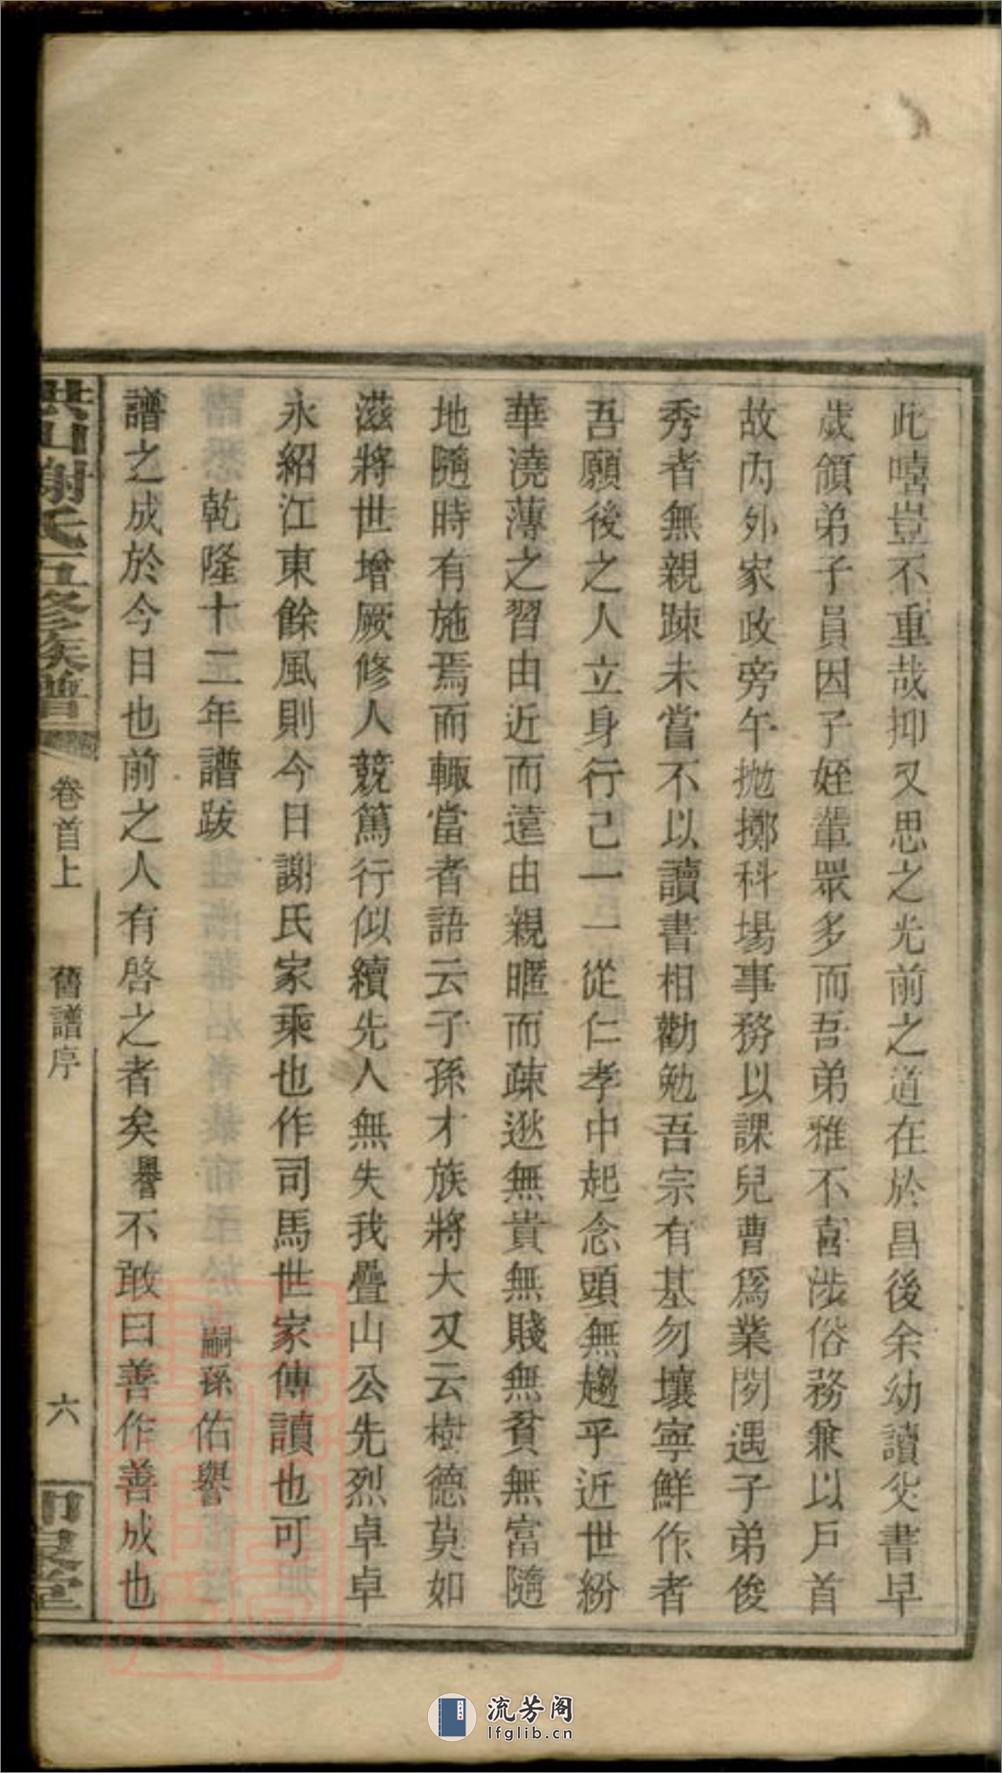 此嘻豈不重哉抑又思之光前之道在於昌後余幼讀父書早
歲領弟子員因子姪輩眾多而吾弟雅不喜涉俗務兼以戶首
故內外家政旁午拋擲科場事務以課兒曹爲業閒遇子弟俊
秀者無親踈未嘗不以讀書相勸勉吾宗有基勿壞寧鮮作者
吾願後之人立身行己一一從仁孝中起念頭無趨乎近世紛
華澆薄之習由近而遠由親暱而疎逖無貴無賤無貧無富隨
地隨時有施焉而輙當者語云子孫才族將大又云樹德莫如
滋將世增厥修人競篤行似續先人無失我疊山公先烈卓卓
永紹江東餘風則今日謝氏家乘也作司馬世家傳讀也可
乾隆十二年譜跋 嗣孫佑譽
譜之成於今日也前之人有啓之者矣譽不敢曰善作善成也
洪山謝氏五修族譜 卷首上 舊譜序 六
流芳阁
lfglib.cn